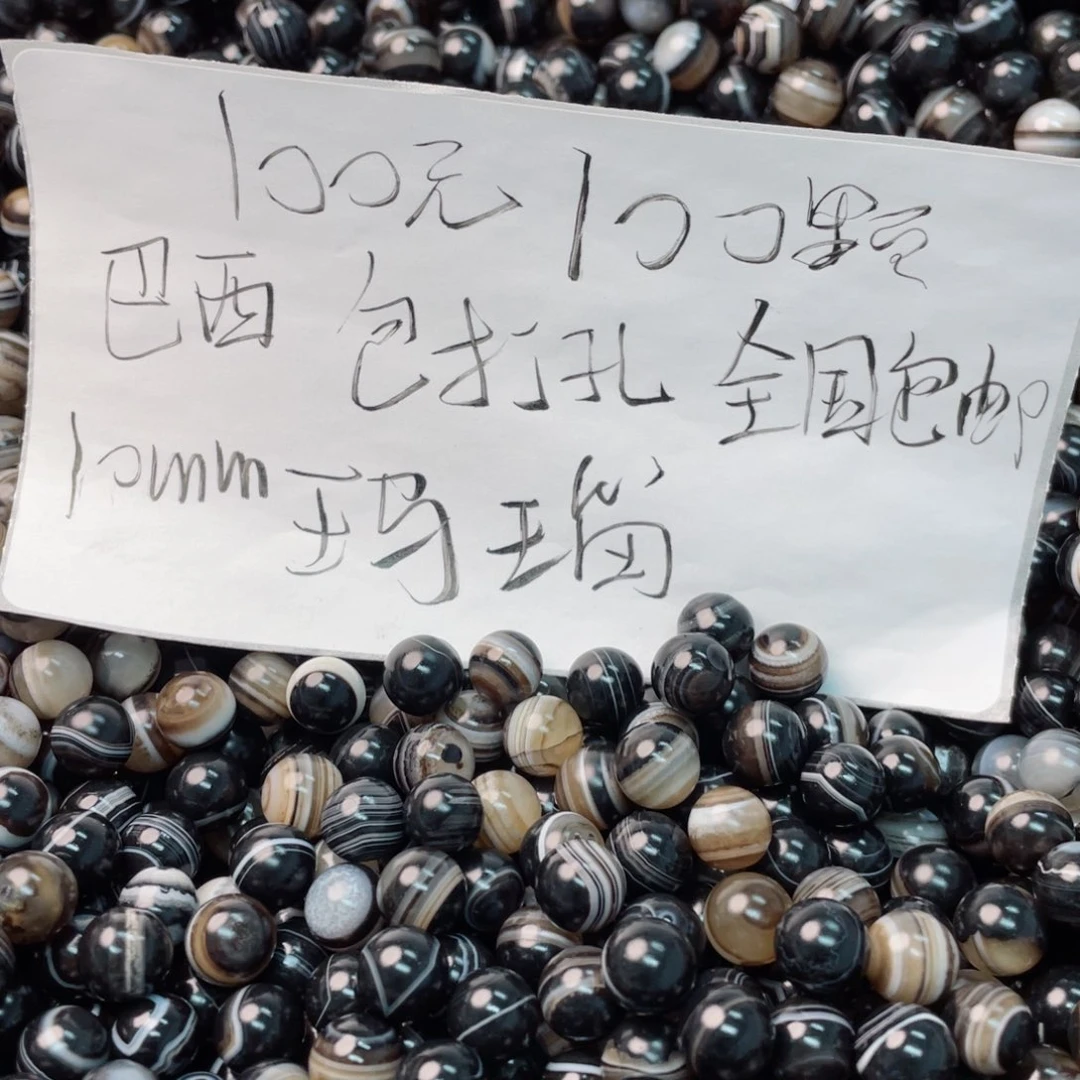 100元 100颗
巴西 包打孔 全国包邮
10mm 玛瑙